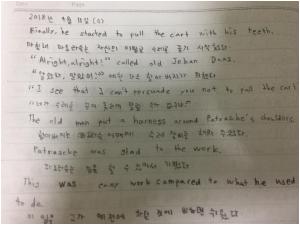 2018년 9월 11일 (화)
Finally, he started to pull the cart with his teeth.
마침내 파트라슈는 자신의 이빨로 수레를 끌기 시작했다
"Alright, alright!" called old Jehan Daas.
"알았다, 알았어!"
"I see that I can't persuade you not to pull the cart"
The old man put a harness around Patrasche's shoulders.
Patrasche was glad to the work.
파트라슈는 일을 할 수 있어서 기뻤다.
This was easy work compared to what he used
to do.
이 일은 그가 예전에 하던 것에 비하면 쉬웠다.